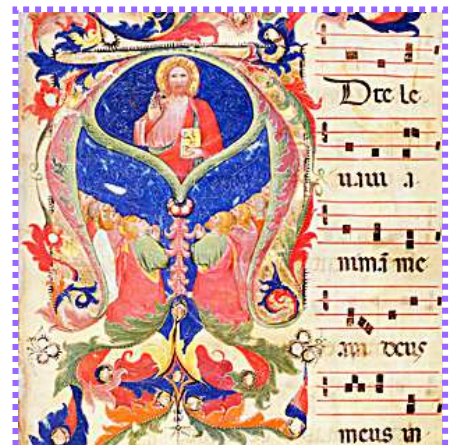 D te le
uaui a
nimā me
am deus
meus in